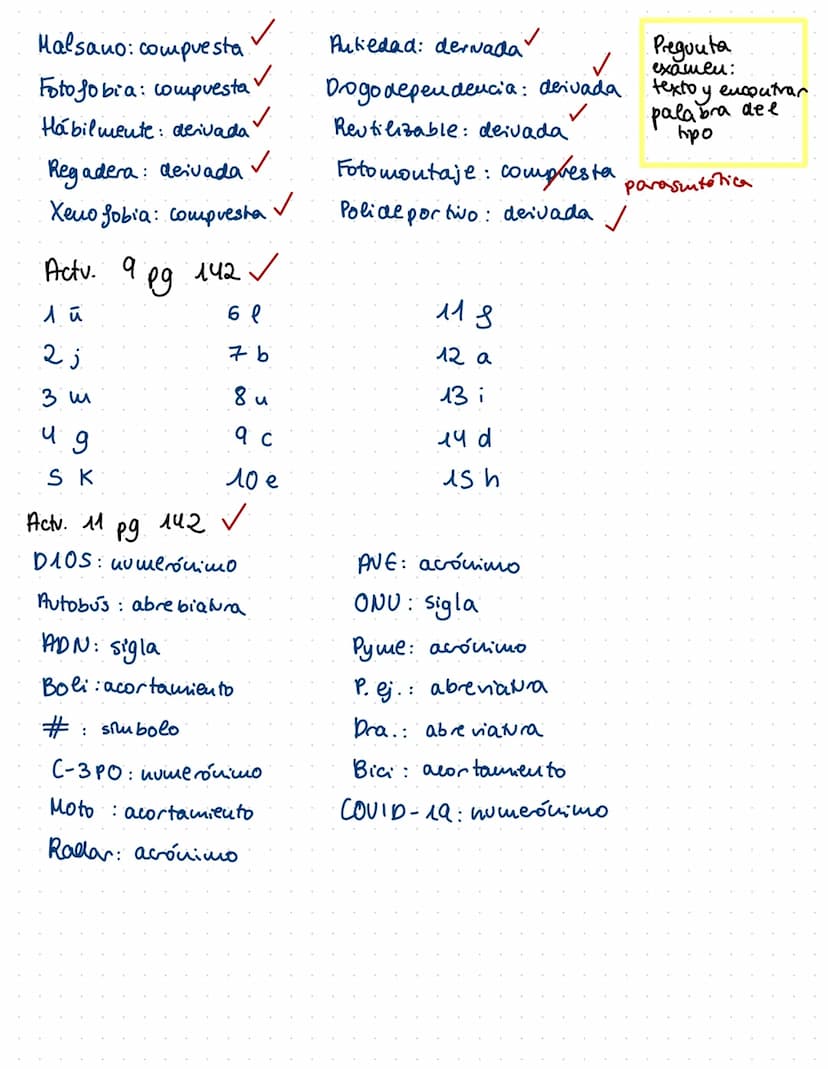 Malsano: compuesta
Fotofobia: compuesta
Hábilmente: derivada
Regadera: derivada
Xenofobia: compuesta
Antiedad: derivada
Drogodependencia: derivada
Reutilizable: derivada
Fotomontaje: compuesta
parasintética
Polideportivo: derivada
Pregunta
exámen:
texto y encontrar
palabra de el
tipo
Actv. 9 pg 142
1 ñ
2 j
3 m
4 g
5 K
6 l
7 b
8 n
9 c
10 e
11 f
12 a
13 i
14 d
15 h
Actv. 11 pg 142
D10S: numerónimo
Autobús: abrebiatura
ADN: sigla
Boli: acortamiento
#: símbolo
C-3PO: numerónimo
Moto: acortamiento
Radar: acrónimo
AVE: acrónimo
ONU: sigla
Pyme: acrónimo
P. ej.: abreviatura
Dra.: abreviatura
Bici: acortamiento
COVID-19: numerónimo